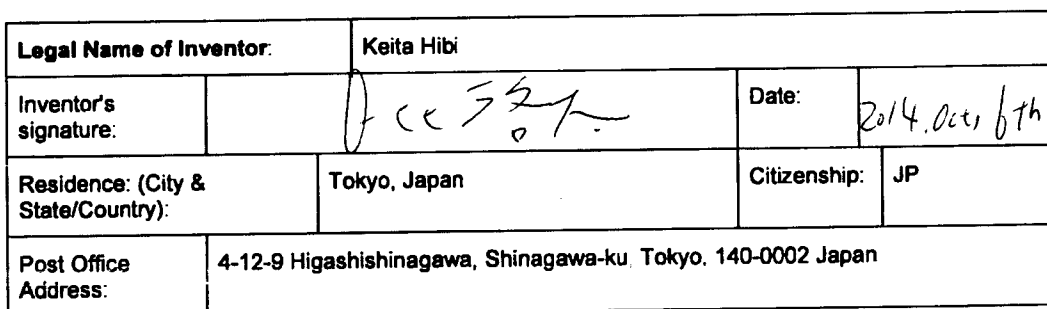 Legal Name of Inventor: Keita Hibi
Inventor's signature: Date: 2014. Oct, 6th
Residence: (City & State/Country): Tokyo, Japan Citizenship: JP
Post Office Address: 4-12-9 Higashishinagawa, Shinagawa-ku, Tokyo, 140-0002 Japan